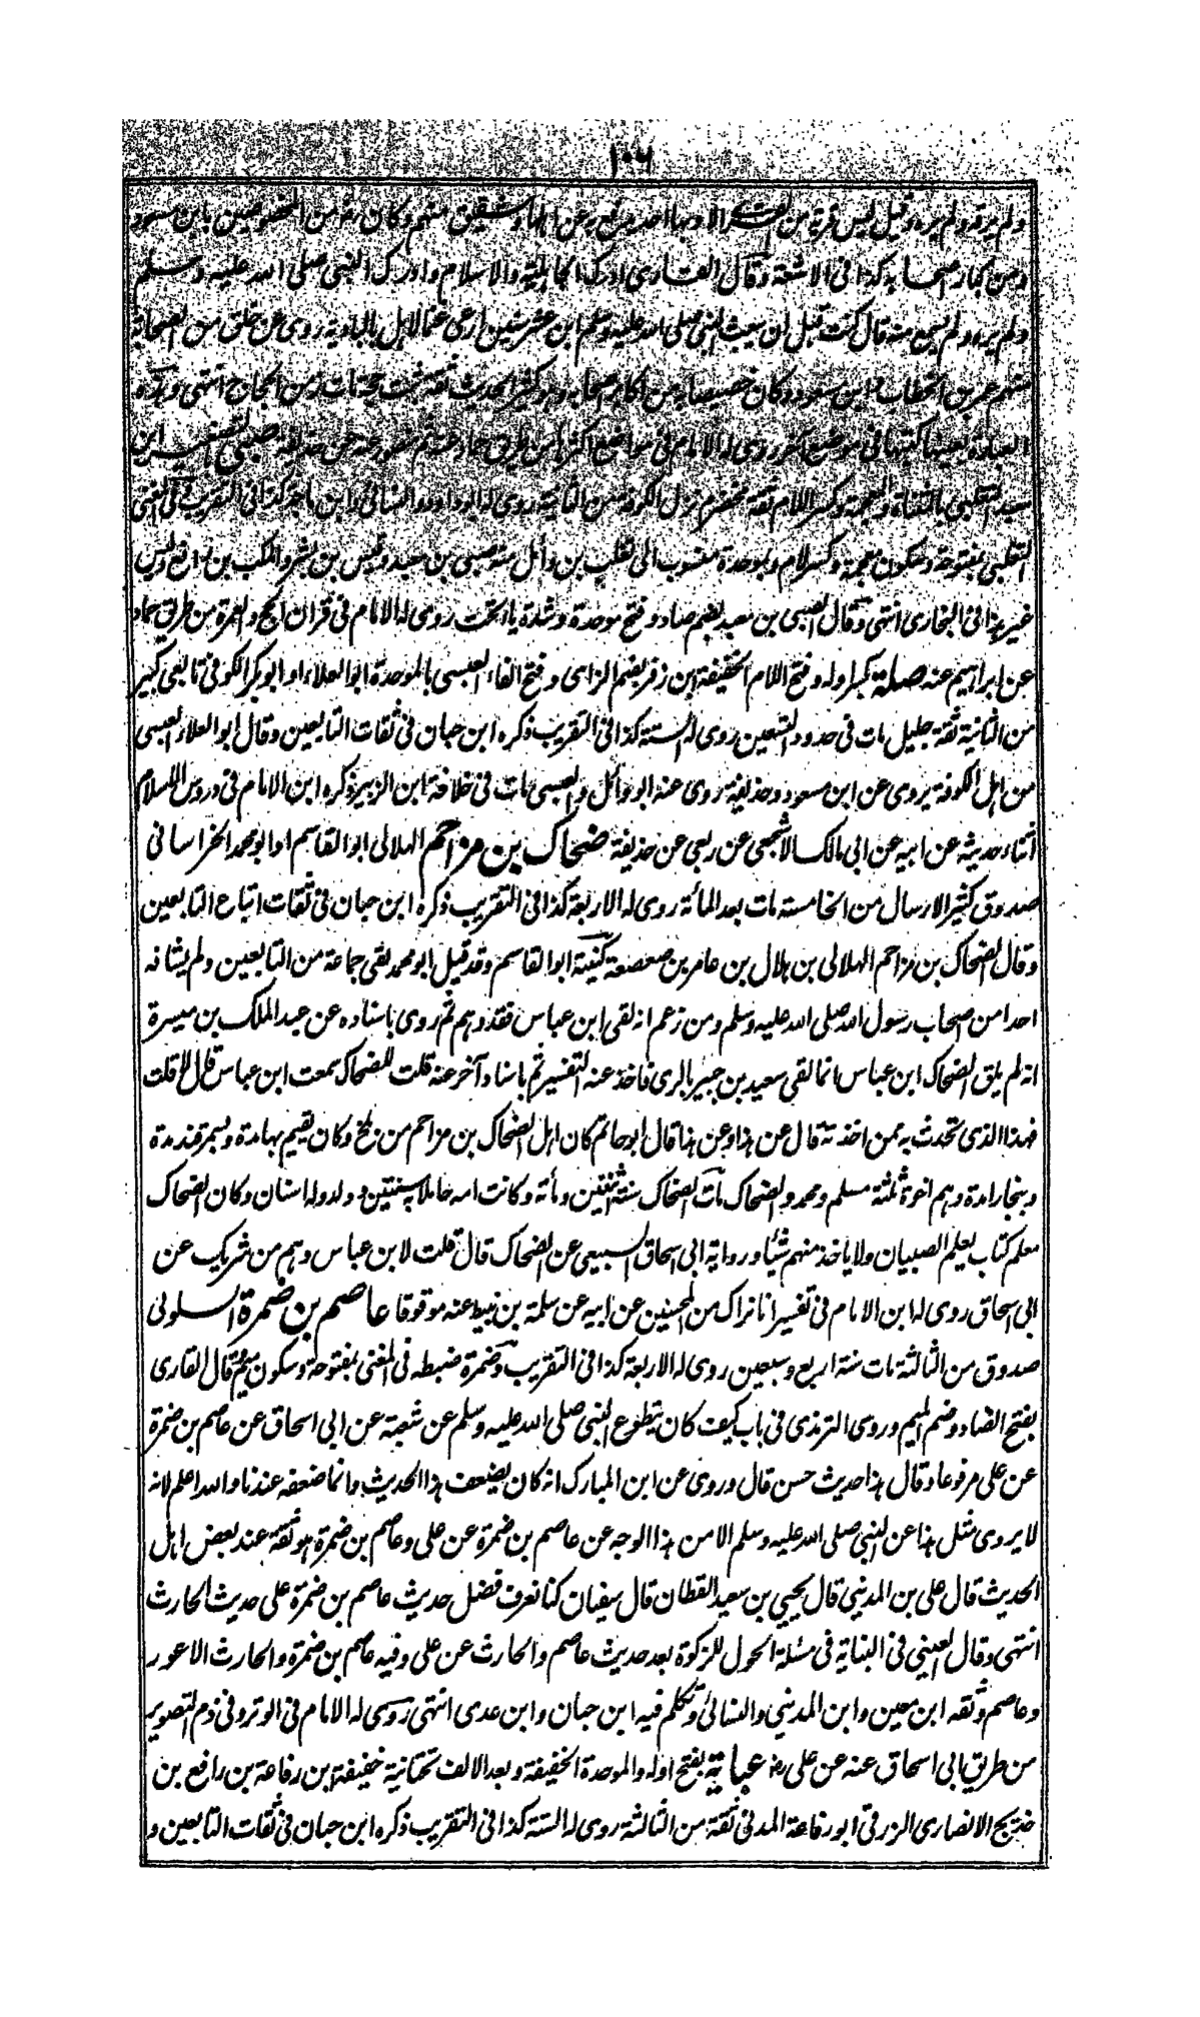 ١٠٦
ولم يرقه ولم يره وقيل ليس قرية من الا وبها احد يدفع عن اهلها وشقيق منهم وكان رضه من المخصوصين بابن مسعود
ومن كبار اصحابه كذا فى الاشعة وقال القارى ادرك الجاهلية والاسلام وادرك النبى صلى الله عليه وسلم
ولم يره ولم يسمع منه قال كنت قبل ان يبعث النبى صلى الله عليه وسلم ابن عشر سنين ارعى غنما لاهلى بالبادية روى عن خلق من الصحابة
منهم عمر بن الخطاب وابن مسعود وكان خصيصا به من اكابر اصحابه وهو كثير الحديث ثقة ثبت حجة مات زمن الحجاج انتهى وهذه
العبارة بعينها كتبها فى موضع آخر روى له الامام فى مواضع اكثرها من طريق حماد عنه ثم منصور عنه عن حذيفة صبى بالتصغير ابن
معبد التغلبى بالمثناة والمعجمة وكسر اللام ثقة مخضرم نزل الكوفة من الثانية روى له ابو داود والنسائى وابن ماجة كذا فى التقريب وفى المغنى
التغلبى بمفتوحة وسكون معجمة وكسر لام وبموحدة منسوب الى تغلب بن وائل منه صبى بن معبد وقيس بن بشر والمسيب بن رافع وليس
غير هذا فى البخارى انتهى وقال الصبى بن معبد بضم صاد وفتح موحدة وشدة ياء تحت روى له الامام فى قران الحج والعمرة من طريق حماد
عن ابراهيم عنه صلة بكسر اوله وفتح اللام الخفيفة ابن زفر بضم الزاى وفتح الفاء العبسى بالموحدة ابو العلاء او ابو بكر الكوفى تابعى كبير
من الثانية ثقة جليل مات فى حدود التسعين روى له الستة كذا فى التقريب ذكره ابن حبان فى ثقات التابعين وقال ابو العلاء العبسى
من اهل الكوفة يروى عن ابن مسعود وحذيفة روى عنه ابو وائل والعبسى مات فى خلافة ابن الزبير ذكره ابن الامام فى دروس الاسلام
اثناء حديثه عن ابيه عن ابى مالك الاشجعى عن ربعى عن حذيفة ضحاك بن مزاحم الهلالى ابو القاسم او ابو محمد الخراسانى
صدوق كثير الارسال من الخامسة مات بعد المائة روى له الاربعة كذا فى التقريب ذكره ابن حبان فى ثقات اتباع التابعين
وقال الضحاك بن مزاحم الهلالى بن هلال بن عامر بن صعصعة كنيته ابو القاسم وقد قيل ابو محمد لقى جماعة من التابعين ولم يشافه
احدا من اصحاب رسول الله صلى الله عليه وسلم ومن زعم انه لقى ابن عباس فقد وهم ثم روى باسناده عن عبد الملك بن ميسرة
انه لم يلق الضحاك ابن عباس انما لقى سعيد بن جبير بالرى فاخذ عنه التفسير ثم باسناد آخر عنه قلت للضحاك سمعت ابن عباس قال لا قلت
فهذا الذى تحدث به عمن اخذته قال عن هذا وعن هذا قال ابو حاتم كان اهل الضحاك بن مزاحم من بلخ وكان يقيم بها مدة وبسمرقند مدة
وببخارا مدة وهم اخوة ثلثة مسلم ومحمد والضحاك مات الضحاك سنة اثنتين ومائة وكانت امه حاملا به سنتين ولد وله اسنان وكان الضحاك
معلم كتاب يعلم الصبيان ولا ياخذ منهم شيئا ورواية ابى اسحاق السبيعى عن الضحاك قال قلت لابن عباس وهم من شريك عن
ابى اسحاق روى له ابن الامام فى تفسير انا نراك من المحسنين عن ابيه عن سلمة بن نبيط عنه موقوفا عاصم بن ضمرة السلولى
صدوق من الثالثة مات سنة اربع وسبعين روى له الاربعة كذا فى التقريب وضمرة ضبطه فى المغنى بمفتوحة وسكون ميم وقال القارى
بفتح الضاد وضم الميم وروى الترمذى فى باب كيف كان يتطوع النبى صلى الله عليه وسلم عن شعبة عن ابى اسحاق عن عاصم بن ضمرة
عن على مرفوعا وقال هذا حديث حسن قال وروى عن ابن المبارك انه كان يضعف هذا الحديث وانما ضعفه عندنا والله اعلم لانه
لا يروى مثل هذا عن النبى صلى الله عليه وسلم الا من هذا الوجه عن عاصم بن ضمرة عن على وعاصم بن ضمرة هو ثقة عند بعض اهل
الحديث قال على بن المدينى قال يحيى بن سعيد القطان قال سفيان كنا نعرف فضل حديث عاصم بن ضمرة على حديث الحارث
انتهى وقال العينى فى البناية فى مسئلة الحول للزكوة بعد حديث عاصم والحارث عن على وفيه عاصم بن ضمرة والحارث الاعور
وعاصم وثقه ابن معين وابن المدينى والنسائى وتكلم فيه ابن حبان وابن عدى انتهى روى له الامام فى الوتر وفى ذم التصوير
من طريق ابى اسحاق عنه عن على رضه عباية بفتح اوله والموحدة الخفيفة وبعد الالف تحتانية خفيفة ابن رفاعة بن رافع بن
خديج الانصارى الزرقى ابو رفاعة المدنى ثقة من الثالثة روى له الستة كذا فى التقريب ذكره ابن حبان فى ثقات التابعين و